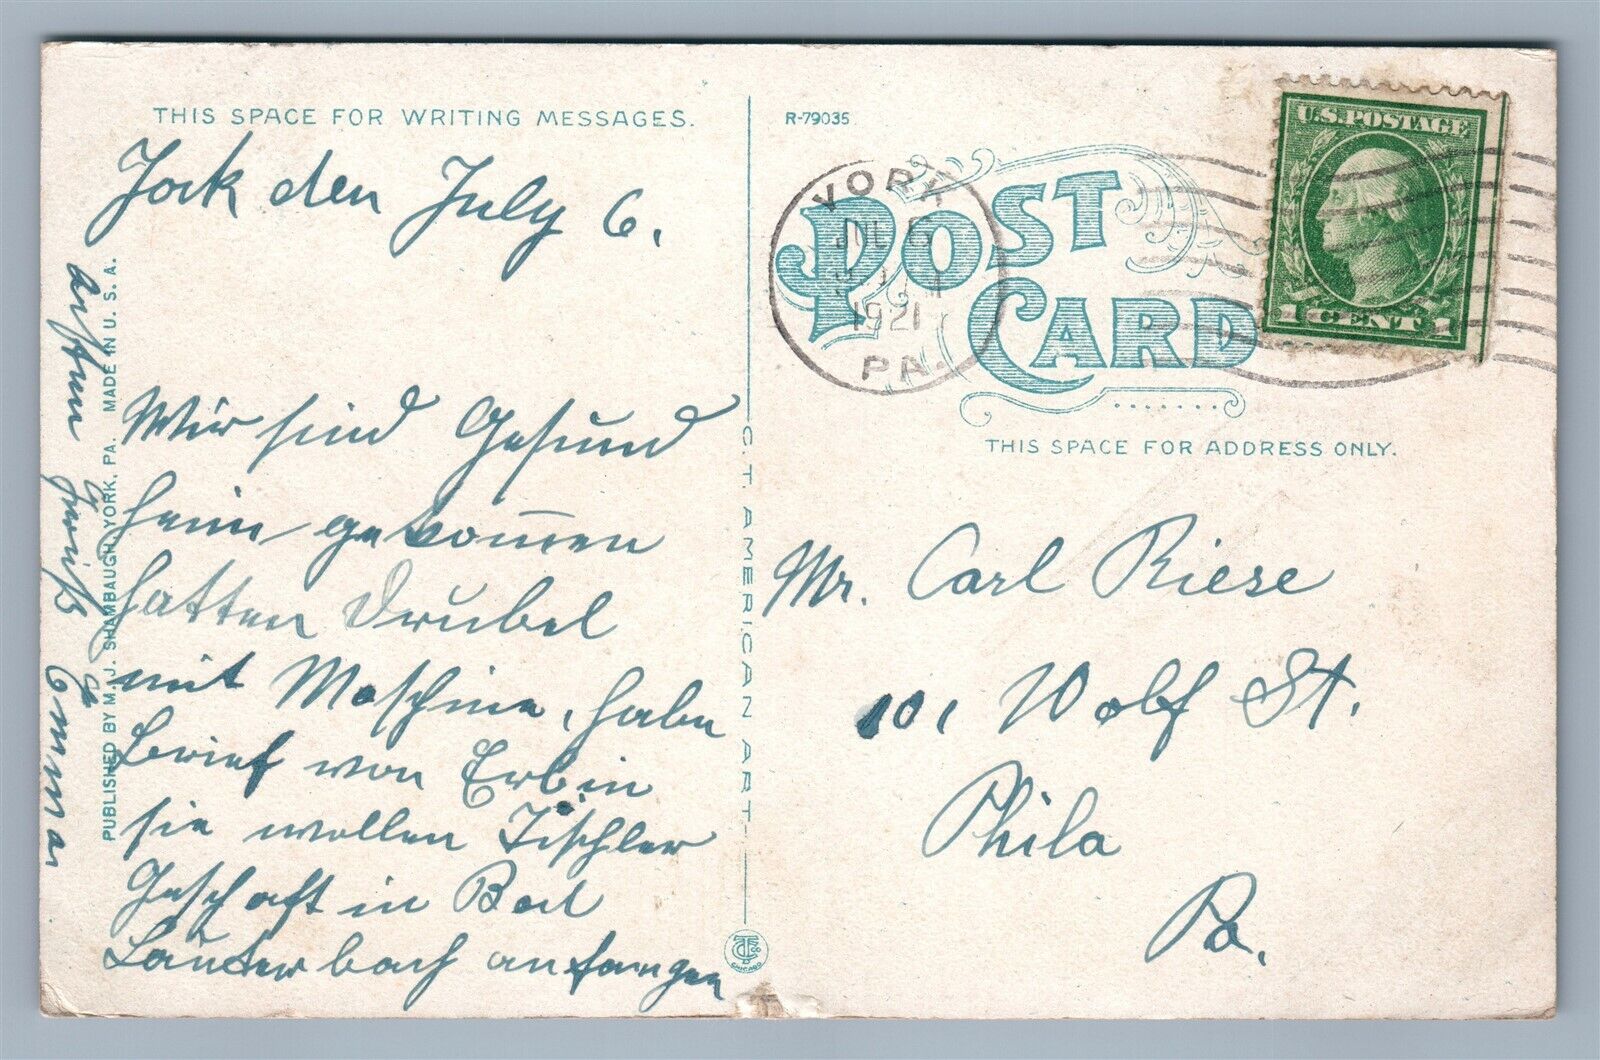 THIS SPACE FOR WRITING MESSAGES.
York den July 6.
Wir sind Gesund
heim gekom̅en
hatten Drubel
mit Maschine, habe
Brief von Erbin
sie wollen Tischler
Geschäft in Bad
Lauterbach anfangen
gruß Emma
PUBLISHED BY M. J. SHAMBAUGH, YORK, PA. MADE IN U. S. A.
C. T. AMERICAN ART
R-79035
POST
CARD
YORK
JUL 6
1921
PA.
U.S. POSTAGE
1 CENT 1
THIS SPACE FOR ADDRESS ONLY.
Mr. Carl Riese
101 Wolf St.
Phila
Pa.
CHICAGO